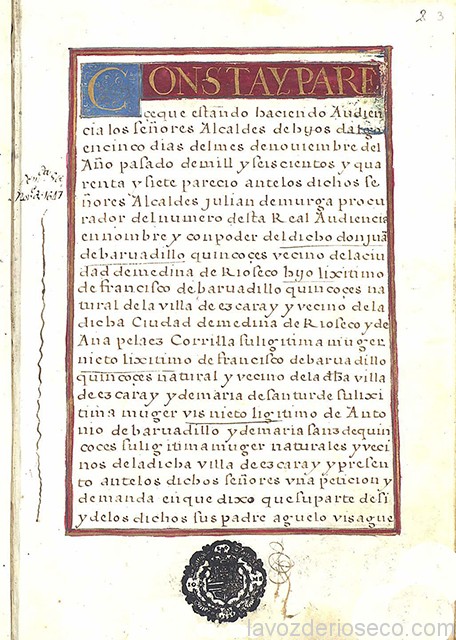 2 3
CONSTAYPARE
ceque estando haciendo Audien
cia los señores Alcaldes dehyos dalgo
encinco dias delmes denoviembre del
Año pasado demill y seiscientos y qua
renta y siete parecio antelos dichos se
ñores Alcaldes julian demurga procu
rador delnumero desta Real Audiencia
ennombre y conpoder deldicho donjuã
debaruadillo quincoçes vecino delaciu
dad demedina de Rioseco hijo lixitimo
de francisco de baruadillo quincoçes na
tural dela villa de ezcaray y vecino dela
dicha Ciudad demedina de Rioseco y de
Ana pelaez Corrilla suligitima muger
nieto lixitimo de francisco debaruadillo
quincoçes natural y vecino dela dha villa
de ezcaray y demaria desanturde sulixi
tima muger vis nieto ligitimo de Anto
nio de baruadillo y demaria sanz dequin
coces suligitima muger naturales y veci
nos deladicha villa de ezcaray y presen
to antelos dichos señores vna peticion y
demanda enque dixo que suparte desi
y delos dichos sus padre aguelo visague
lavozderioseco.com